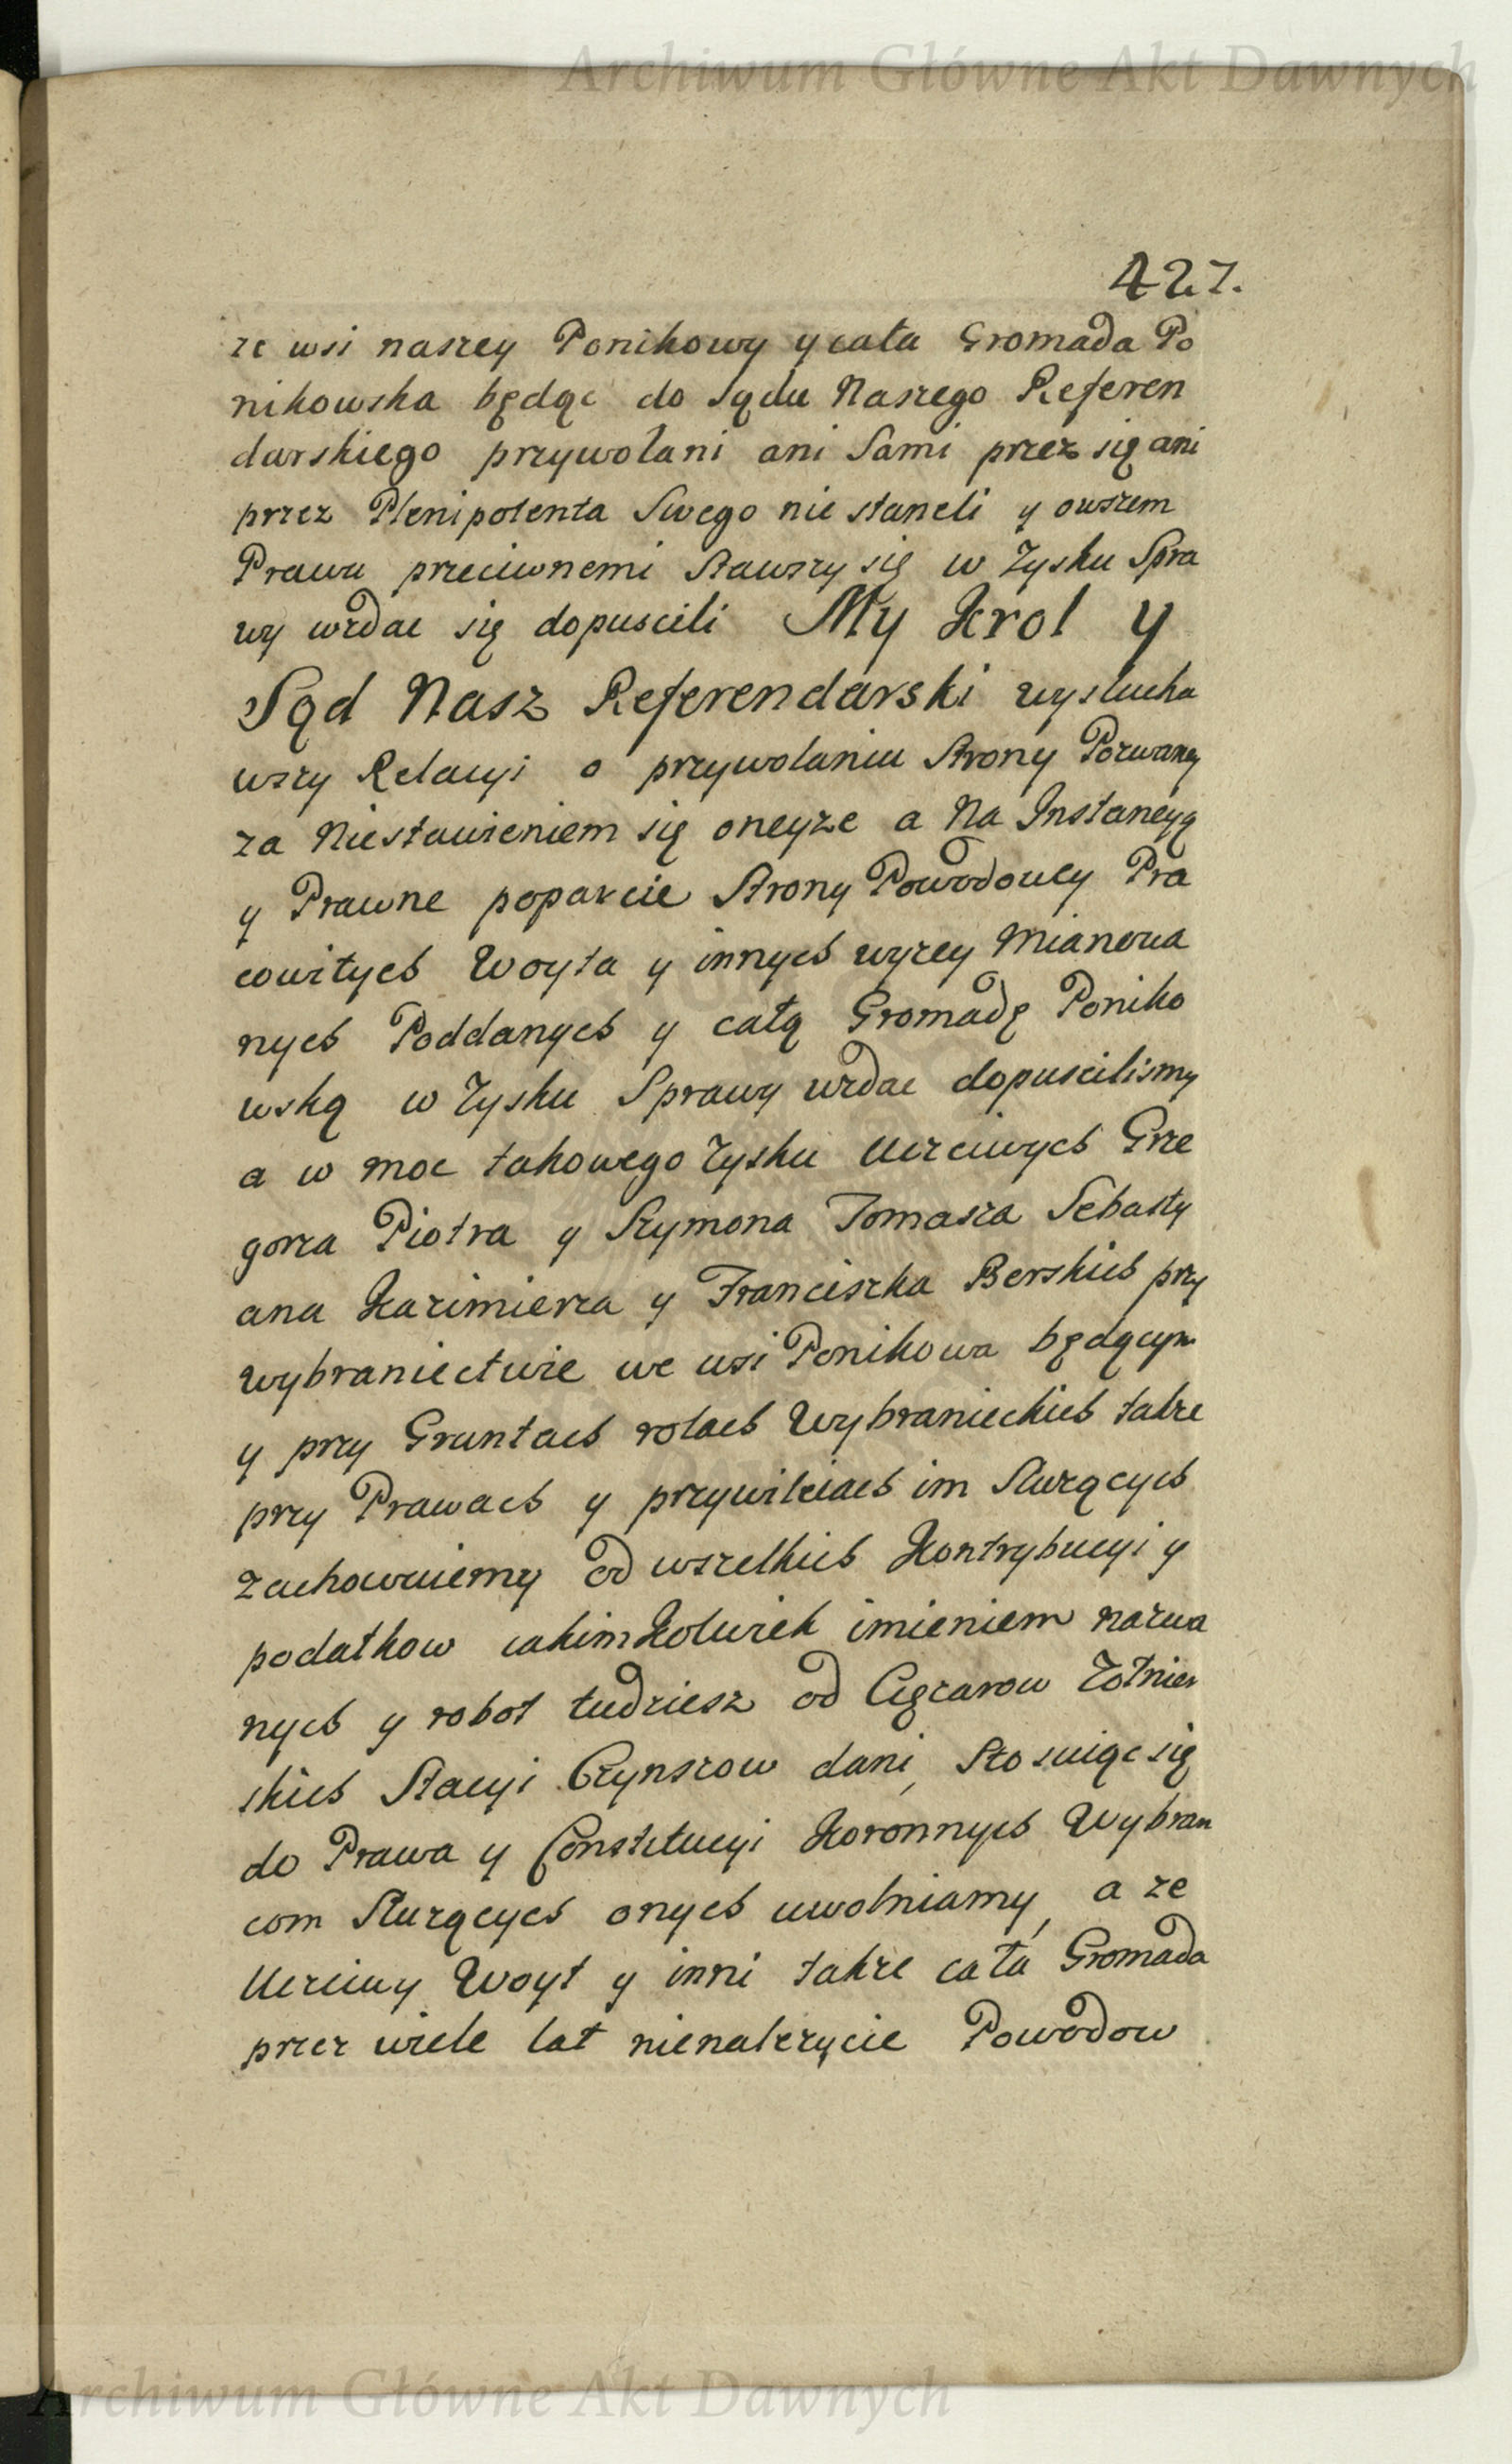 Archiwum Główne Akt Dawnych
427.
ze wsi naszey Ponikowy y cała Gromada Po
nikowska będąc do Sądu Naszego Referen
darskiego przywołani ani Sami przez się ani
przez Plenipotenta Swego nie staneli y owszem
Prawu przeciwnemi stawszy się w Zysku Spra
wy wzdac się dopuscili My Krol y
Sąd Nasz Referendarski wysłucha
wszy Relacyi o przywołaniu Strony Pozwaney
za Niestawieniem się oneyze a Na Instancyą
y Prawne poparcie Strony Powodowey Pra
cowitych Woyta y innych wyzey Mianowa
nych Poddanych y całą Gromadę Poniko
wską w Zysku Sprawy wzdac dopuscilismy
a w moc takowego Zysku Uczciwych Grze
gorza Piotra y Szymona Tomasza Sebasty
ana Kazimierza y Franciszka Berskich przy
wybraniectwie we wsi Ponikowa będącym
y przy Gruntach rolach Wybranieckich takze
przy Prawach y przywileiach im Służących
zachowuiemy od wszelkich Kontrybucyi y
podatkow iakimkolwiek imieniem nazwa
nych y robot tudziesz od Cięzarow Zołnier
skich Stacyi Czynszow dani, Stosuiąc się
do Prawa y Constitucyi Koronnych Wybran
com Służących onych uwolniamy, a ze
Uczciwy Woyt y inni takze cała Gromada
przez wiele lat nienalezycie Powodow
Archiwum Główne Akt Dawnych